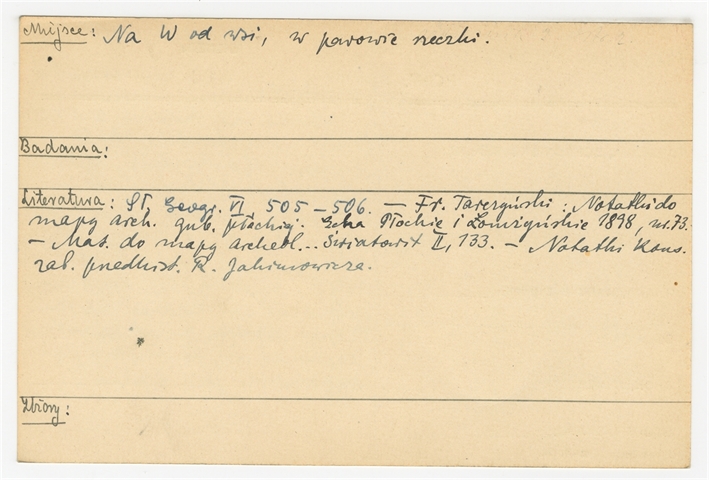 Miejsce: Na W od wsi, w parowie rzeczki.
Badania:
Literatura: Sł. Geogr. VI 505-506. — Fr. Tarczyński: Notatki do
mapy arch. gub. płockiej. Echa Płockie i Łomżyńskie 1898, nr. 73.
— Mat. do mapy archeol... Światowit II, 133. — Notatki Kons.
zab. predhist. R. Jakimowicza.
Zbiory: